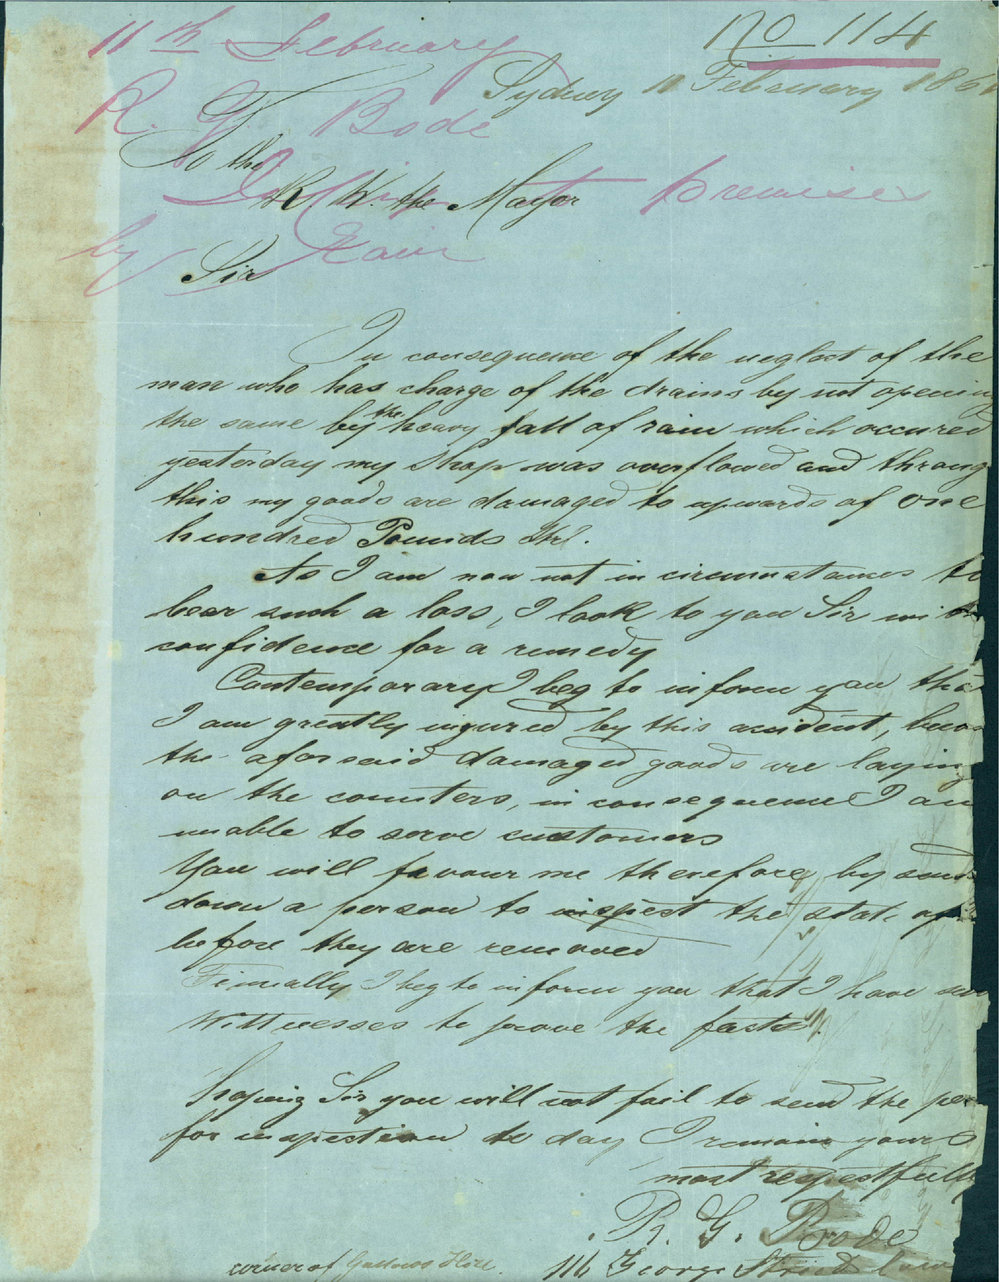 11th February
No 114
Sydney 11 February 186
R. G. Bode
To the
R. W. the Mayor
premises
by Rain
Sir
In consequence of the neglect of the
man who has charge of the drains by not opening
the same by the heavy fall of rain which occured
yesterday my shop was overflowed and throug
this my goods are damaged to upwards of one
hundred Pounds Str.
As I am now not in circumstances to
bear such a loss, I look to you Sir with
confidence for a remedy
Contemporary I beg to inform you tha
I am greatly injured by this accident,
the aforsaid damaged goods are laying
on the counters, in consequence I am
unable to serve customers
You will favour me therefore, by send
down a person to inspect the state of
before they are removed
Finially I beg to inform you that I have
Wittnesses to prove the facts.
hoping Sir you will not fail to send the per
for inspection to day I remain yours
most respectfully
R. G. Bode
116 George Street
corner of Gallows Hill